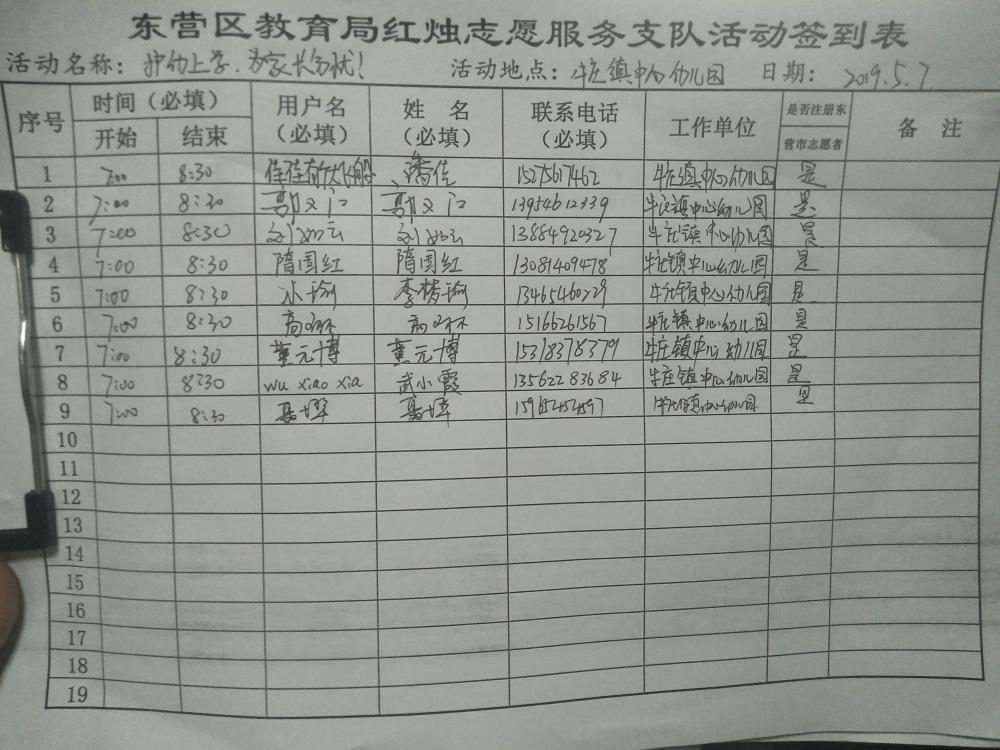 东营区教育局红烛志愿服务支队活动签到表
活动名称：护幼上学.为家长分忧！ 活动地点：牛庄镇中心幼儿园 日期：2019.5.7.
序号 时间（必填） 用户名（必填） 姓名（必填） 联系电话（必填） 工作单位 是否注册东营市志愿者 备注
开始 结束
1 7:00 8:30 潘佳 15275617462 牛庄镇中心幼儿园 是
2 7:00 8:30 13954612339 牛庄镇中心幼儿园 是
3 7:00 8:30 13884920327 牛庄镇中心幼儿园 是
4 7:00 8:30 隋国红 隋国红 13081409478 牛庄镇中心幼儿园 是
5 7:00 8:30 冰瑜 李梦瑜 13465460229 牛庄镇中心幼儿园 是
6 7:00 8:30 15166261567 牛庄镇中心幼儿园 是
7 7:00 8:30 董元博 董元博 15318378379 牛庄镇中心幼儿园 是
8 7:00 8:30 wu xiao xia 武小霞 13562283684 牛庄镇中心幼儿园 是
9 7:00 8:30 牛庄镇中心幼儿园 是
10
11
12
13
14
15
16
17
18
19